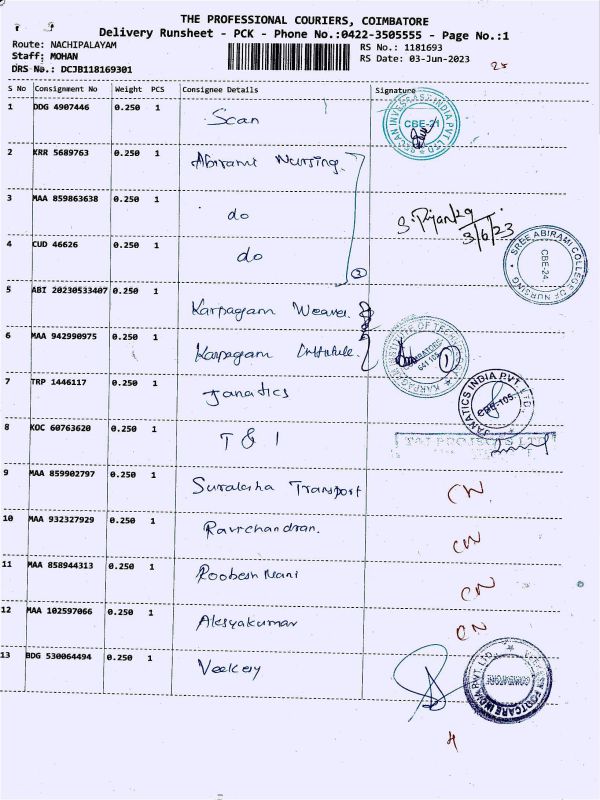 THE PROFESSIONAL COURIERS, COIMBATORE
Delivery Runsheet - PCK - Phone No.:0422-3505555 - Page No.:1
Route: NACHIPALAYAM
RS No.: 1181693
Staff: MOHAN
RS Date: 03-Jun-2023
DRS No.: DCJB118169301
25
S No Consignment No Weight PCS Consignee Details Signature
1 DDG 4907446 0.250 1 Scan CBE-21
2 KRR 5689763 0.250 1 Abirami Nursing.
3 MAA 859863638 0.250 1 do S. Priyanka
3/6/23
4 CUD 46626 0.250 1 do 3
SREE ABIRAMI COLLEGE OF NURSING CBE-24
5 ABI 20230533407 0.250 1 Karpagam Weaver
6 MAA 942990975 0.250 1 Karpagam Institute. 1
7 TRP 1446117 0.250 1 Janatics JANATICS INDIA PVT. LTD. CBE-105
8 KOC 60763620 0.250 1 T & I
9 MAA 859902797 0.250 1 Suraksha Transport CN
10 MAA 932327929 0.250 1 Ravichandran. CN
11 MAA 858944313 0.250 1 Roobesh Mani CN
12 MAA 102597066 0.250 1 CN
13 BDG 530064494 0.250 1
COIMBATORE
4